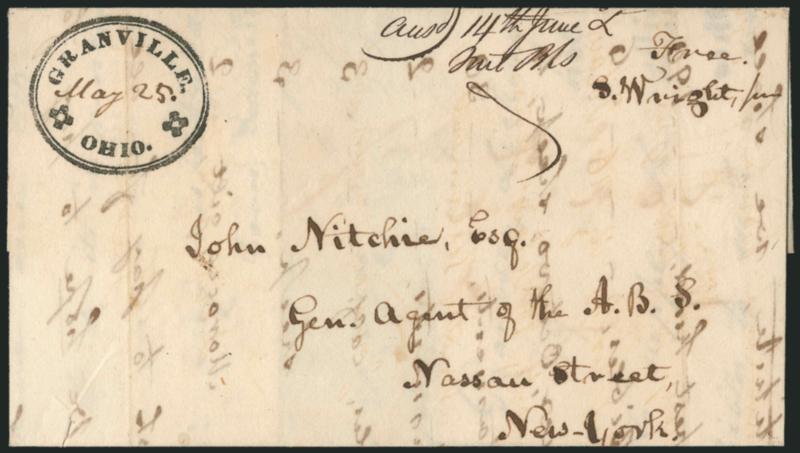 GRANVILLE.
May 25.
OHIO.
14th June
Free.
S. Wright,
John Nitchie, Esq.
Gen. Agent of the A. B. S.
Nassau Street,
New-York.